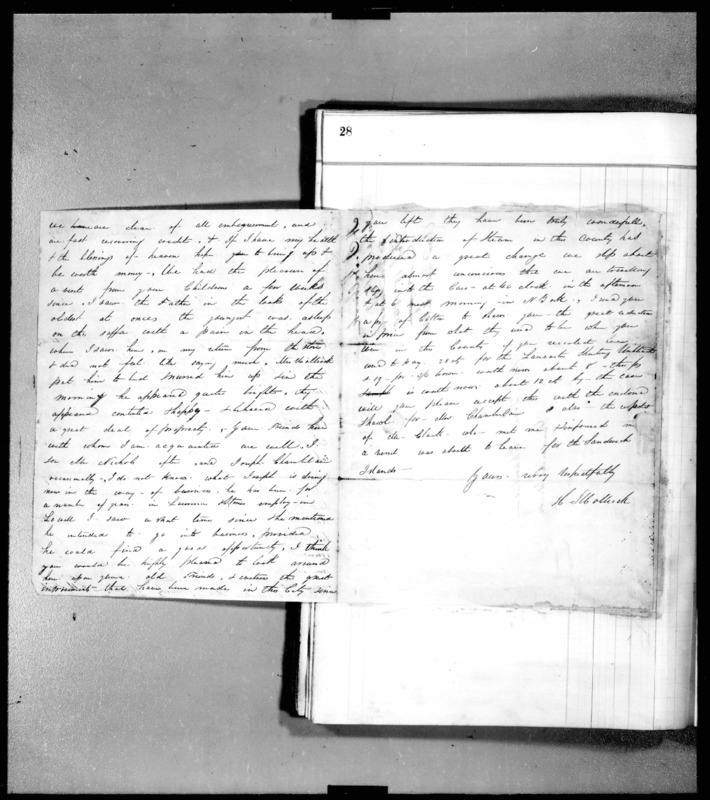 28
we are clear of all embarrassment, and
are fast recovering credit, & If I have my health
& the blessings of heaven hope yet to bring up &
be worth money - We had the pleasure of
a visit from your Children a few weeks
since. I saw the Father in the look of the
oldest at once, the youngest was asleep
on the soffa with a pain in the head,
when I saw him, on my return from the store
& did not feel like saying much, Mrs
put him to bed nursed him up & in the
morning he appeared quite bright, they
appeared contented & happy - & behaved with
a great deal of propriety. & Your friends here
with whom I am acquainted are well. I
see Mr Nichols oft and Joseph Chamberlain
occasionally, I do not know what Joseph is doing
now in the way of business, he has been for
a number of years in Lawrence Stone employ - in
Lowell I saw a short time since & he mentioned
he intended to go into business, provided
he could find a good opportunity, I think
you would be highly pleased to look around
here upon your old friends, & witness the great
improvements that have been made in this City since
you left they have been truly wonderful,
the introduction of Steam in this County has
produced a great change we step about
here almost unconscious that we are travelling
step into the Cars - at 4 o clock in the afternoon
& at 6 next morning in N York, I send you
a ps of Cotton to shew you - the great reduction
in prices from what they used to be when you
were in this County if you recollect we
used to pay 28 cts for the Lancaster Shirting
now worth about 8 - the ps
is worth now about 12 cts by the case
will you please accept this with the enclosed
Shawl for Mrs Chamberlain & also the respects
of Mr Clark who met me & informed me
a vessel was about to leave for the Sandwich
Islands -
Yours very respectfully